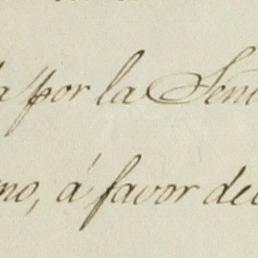 a por la Señ
no, á favor del